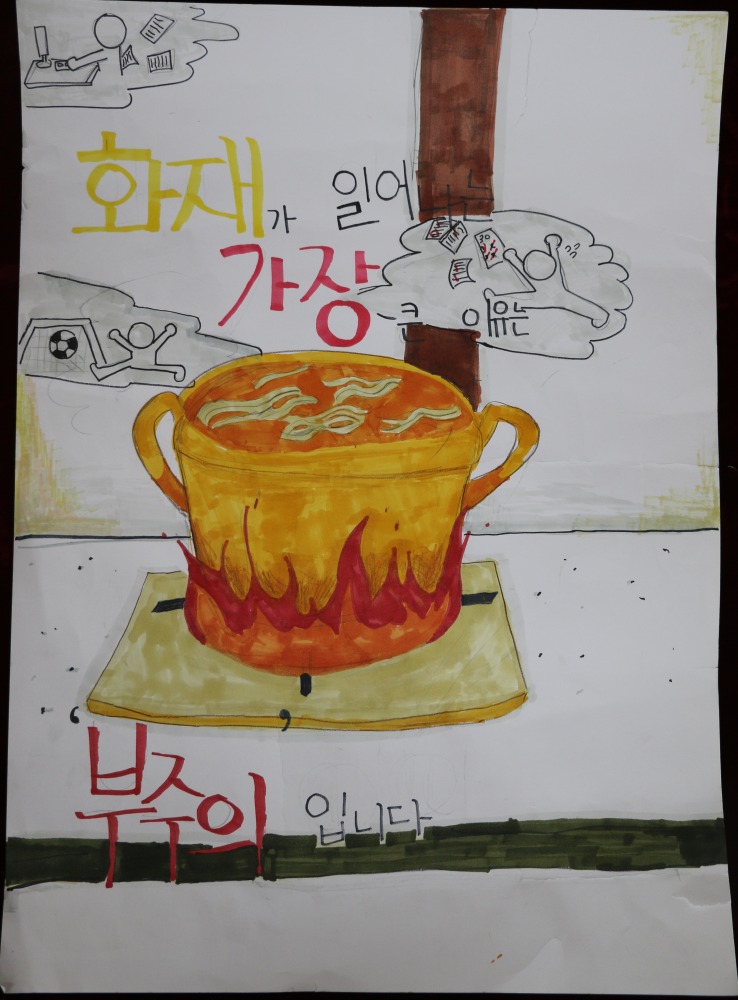 화재가 일어나는
30
가장 큰 이유는
‘부주의’ 입니다